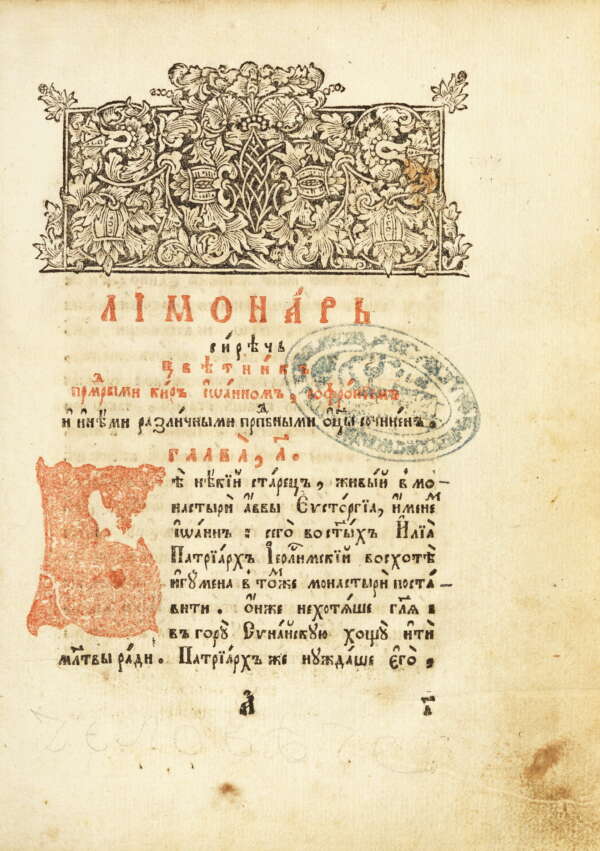 ЛІМОНА́РЬ
си́рѣчь
ЦВѢ́ТНИКЪ
прⷣмрⷭ҇тыми ки́ръ і҆ѡа́нномъ, софро́нїемъ
и҆ и҆нѣ́ми разли́чными прпⷣбными ѻ҆цы̑ сочине́нъ.
ГЛАВА̀, а҃.
Бѣ̀ нѣ́кїй ста́рецъ, живы́й в мо-
настырѝ а҆́ввы Є҆ѵсто́ргїа, и҆́менемъ
І҆ѡа́ннъ : сего̀ во ст҃ы́хъ И҆лїа̀
Патрїа́рхъ І҆ерⷭ҇ли́мскїй восхотѣ̀
и҆гꙋ́мена в то́мже монастырѝ поста́-
вити . Ѻ҆́нже нехотѧ́ше гл҃ѧ
въ го́рꙋ Сѵна́йскꙋю хощꙋ̀ и҆тѝ
мл҃твы ра́ди . Патрїа́рхъ же нꙋжда́ше є҆го̀ ,
А